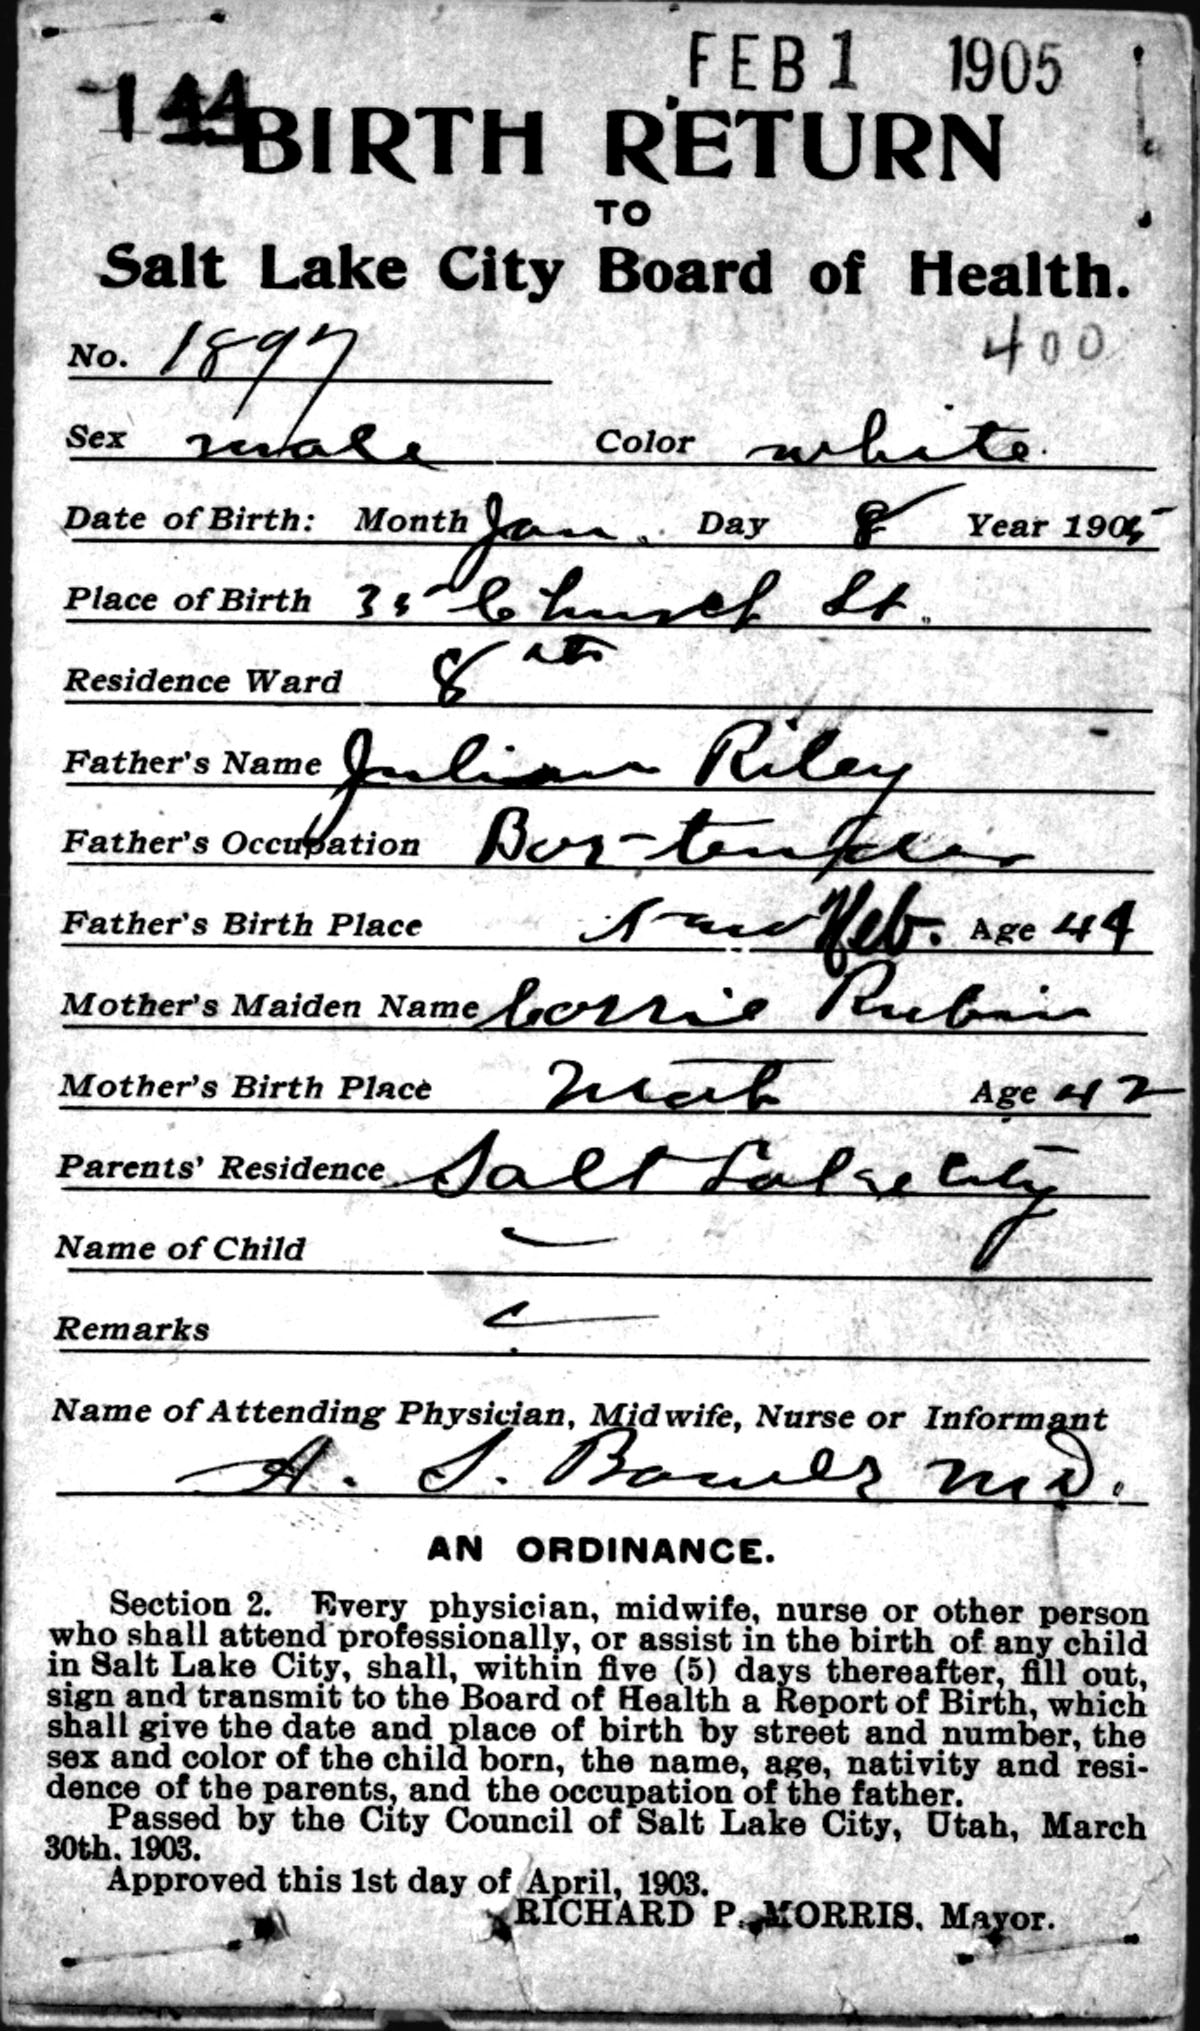 FEB 1 1905
144
BIRTH RETURN
TO
Salt Lake City Board of Health.
No. 1897 400
Sex male Color white
Date of Birth: Month Jan. Day 8 Year 1905
Place of Birth 35 Church St.
Residence Ward 8th
Father's Name Julian Riley
Father's Occupation Bar-tender
Father's Birth Place Neb. Age 44
Mother's Maiden Name Corrie Rubin
Mother's Birth Place Utah Age 42
Parents' Residence Salt Lake City
Name of Child —
Remarks —
Name of Attending Physician, Midwife, Nurse or Informant
A. S. Bower MD.
AN ORDINANCE.
Section 2. Every physician, midwife, nurse or other person
who shall attend professionally, or assist in the birth of any child
in Salt Lake City, shall, within five (5) days thereafter, fill out,
sign and transmit to the Board of Health a Report of Birth, which
shall give the date and place of birth by street and number, the
sex and color of the child born, the name, age, nativity and resi-
dence of the parents, and the occupation of the father.
Passed by the City Council of Salt Lake City, Utah, March
30th, 1903.
Approved this 1st day of April, 1903.
RICHARD P. MORRIS, Mayor.